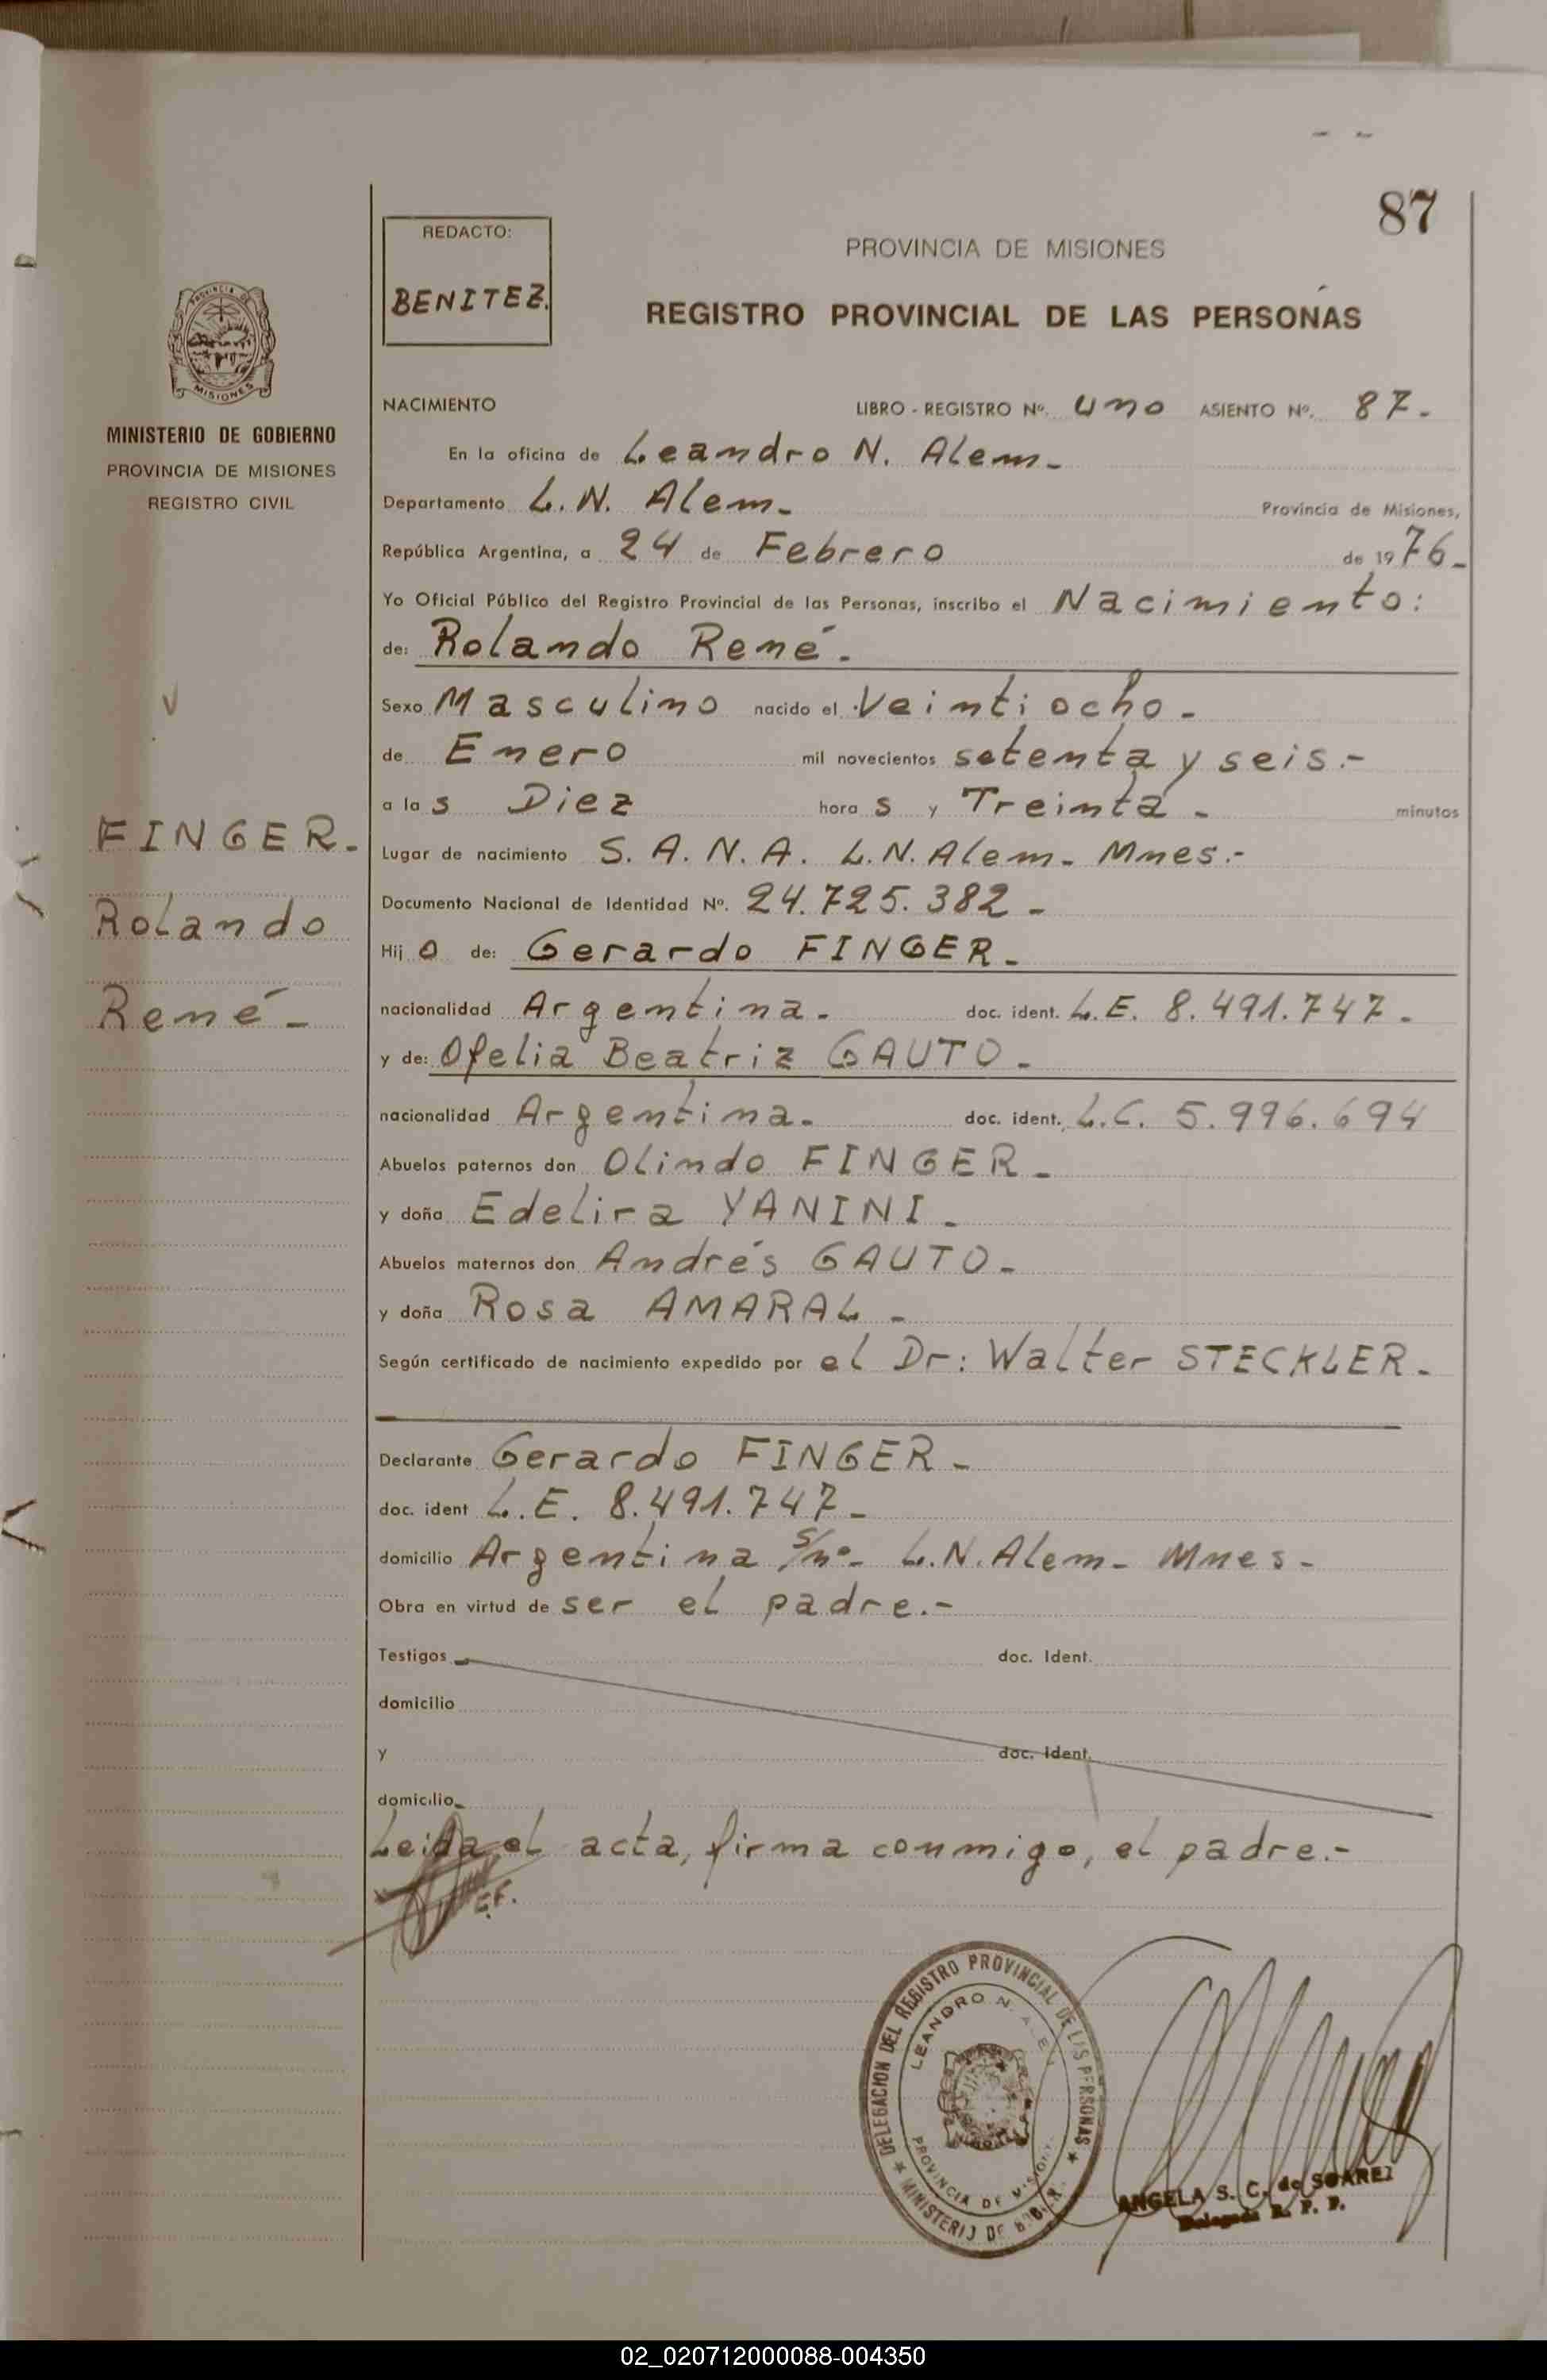 87
REDACTO:
BENITEZ.
PROVINCIA DE MISIONES
REGISTRO PROVINCIAL DE LAS PERSONAS
PROVINCIA DE
MISIONES
MINISTERIO DE GOBIERNO
PROVINCIA DE MISIONES
REGISTRO CIVIL
FINGER.-
Rolando
René-
NACIMIENTO LIBRO - REGISTRO Nº. uno ASIENTO Nº. 87.-
En la oficina de Leandro N. Alem-
Departamento L.N. Alem.- Provincia de Misiones,
República Argentina, a 24 de Febrero de 1976-
Yo Oficial Público del Registro Provincial de las Personas, inscribo el Nacimiento:
de: Rolando René.-
Sexo Masculino nacido el Veintiocho-
de Enero mil novecientos setenta y seis.-
a las Diez horas y Treinta- minutos
Lugar de nacimiento S. A. N. A. L.N. Alem- Mnes.-
Documento Nacional de Identidad Nº. 24.725.382-
Hijo de: Gerardo FINGER-
nacionalidad Argentina.- doc. ident. L.E. 8.491.747.-
y de: Ofelia Beatriz GAUTO-
nacionalidad Argentina.- doc. ident. L.C. 5.996.694
Abuelos paternos don Olindo FINGER-
y doña Edelira YANINI-
Abuelos maternos don Andrés GAUTO-
y doña Rosa AMARAL-
Según certificado de nacimiento expedido por el Dr: Walter STECKLER-
Declarante Gerardo FINGER-
doc. ident L.E. 8.491.747-
domicilio Argentina s/nº- L.N. Alem- Mnes-
Obra en virtud de ser el padre.-
Testigos doc. Ident.
domicilio
y doc. Ident.
domicilio
Leida el acta, firma conmigo, el padre.-
DELEGACION DEL REGISTRO PROVINCIAL DE LAS PERSONAS
LEANDRO N. ALEM
PROVINCIA DE MISIONES
MINISTERIO DE GOB.
ANGELA S. C. de SUAREZ
Delegada R. P. P.
02_020712000088-004350